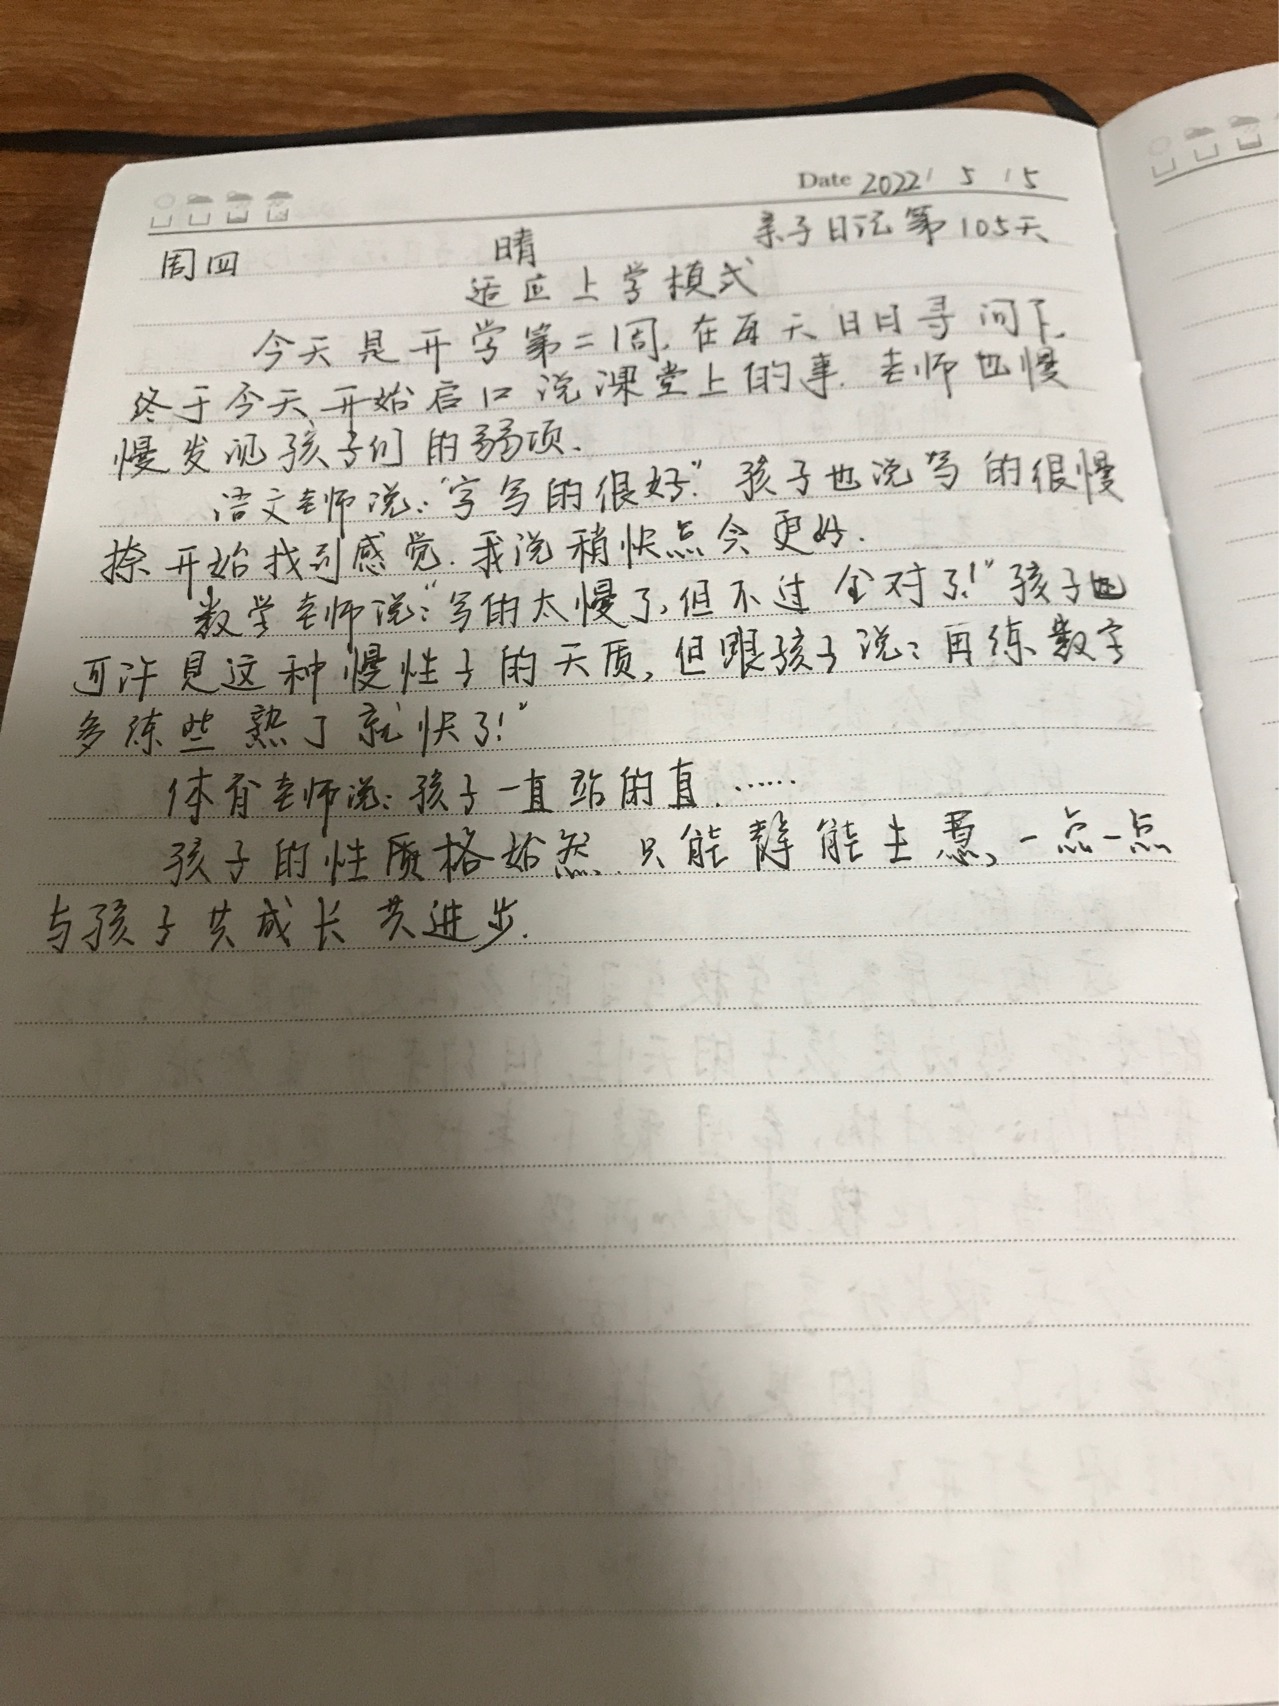 Date 2022 / 5 / 5
亲子日记第105天
周四 晴
适应上学模式
今天是开学第二周.在每天日日寻问下.
终于今天开始启口说课堂上的事.老师也慢
慢发现孩子们的弱项.
语文老师说:"字写的很好."孩子也说"写的很慢
捺开始找到感觉.我说稍快点会更好.
数学老师说:"写的太慢了,但不过全对了!"孩子也
可许是这种慢性子的天质,但跟孩子说:再练数字
多练些熟了就快了!"
体育老师说:孩子一直站的直.……
孩子的性质格始然.只能静能生慧,一点一点
与孩子共成长共进步.